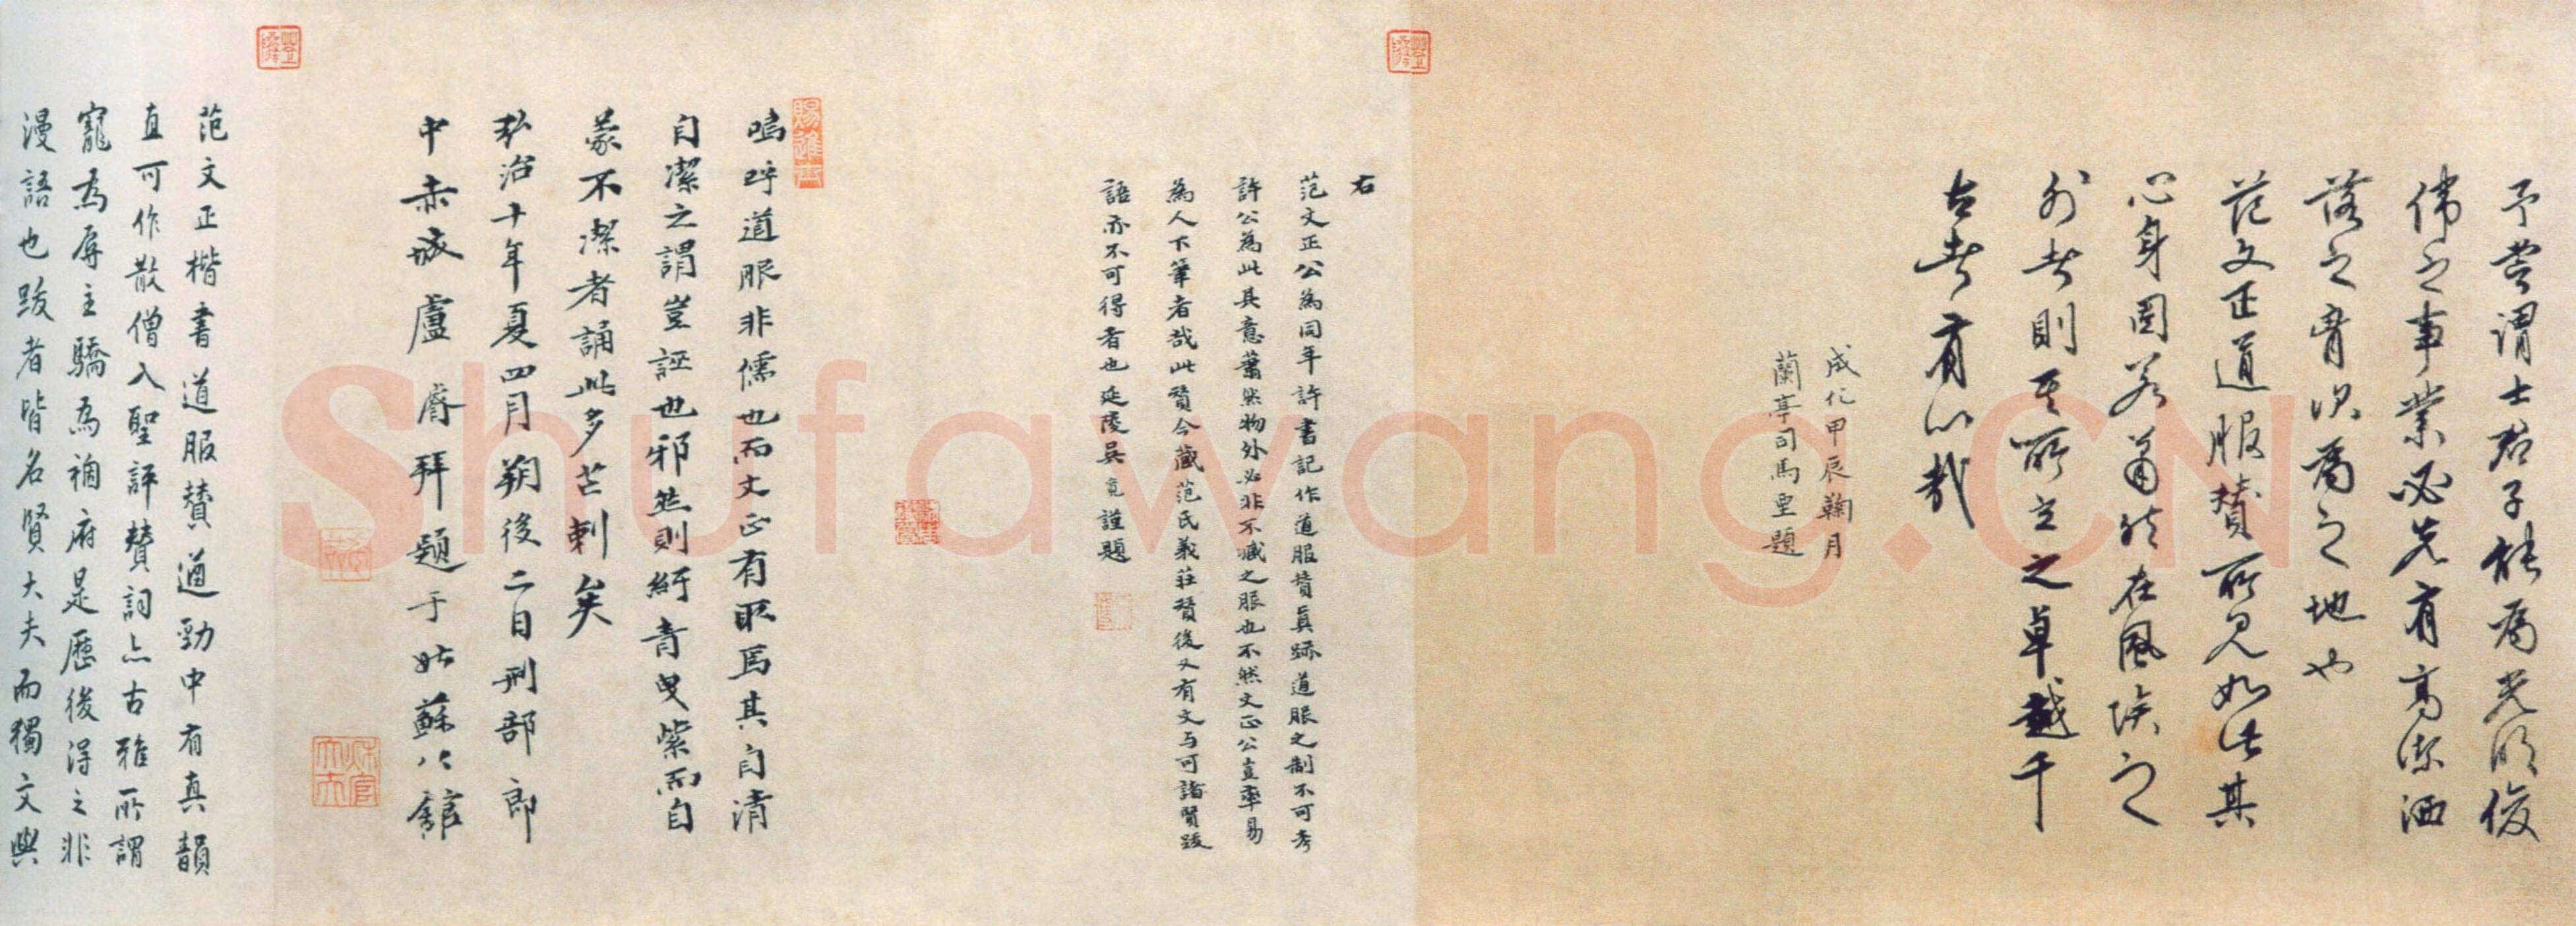 予嘗謂士君子能為光明俊
偉之事業必先有高潔洒
落之胷次為之地也
范文正道服贊所見如此其
心身固若蕭然在風埃之
外者則其所立之卓越千
古者有以哉
成化甲辰鞠月
蘭亭司馬垔題
右
范文正公為同年許書記作道服贊真跡道服之制不可考
許公為此其意蕭然物外必非不臧之服也不然文正公豈率易
為人下筆者哉此贊今藏范氏義莊贊後又有文与可諸賢跋
語亦不可得者也延陵吳寬謹題
嗚呼道服非儒也而文正有取焉其自清
自潔之謂豈誣也邪然則紆青曳紫而自
蒙不潔者誦此多芒刺矣
弘治十年夏四月朔後二日刑部郎
中赤城盧濬拜題于姑蘇公館
賜進士
范文正楷書道服贊遒勁中有真韻
直可作散僧入聖評贊詞亦古雅所謂
寵為辱主驕為禍府是歷後得之非
漫語也跋者皆名賢大夫而獨文與
Shufawang.CN